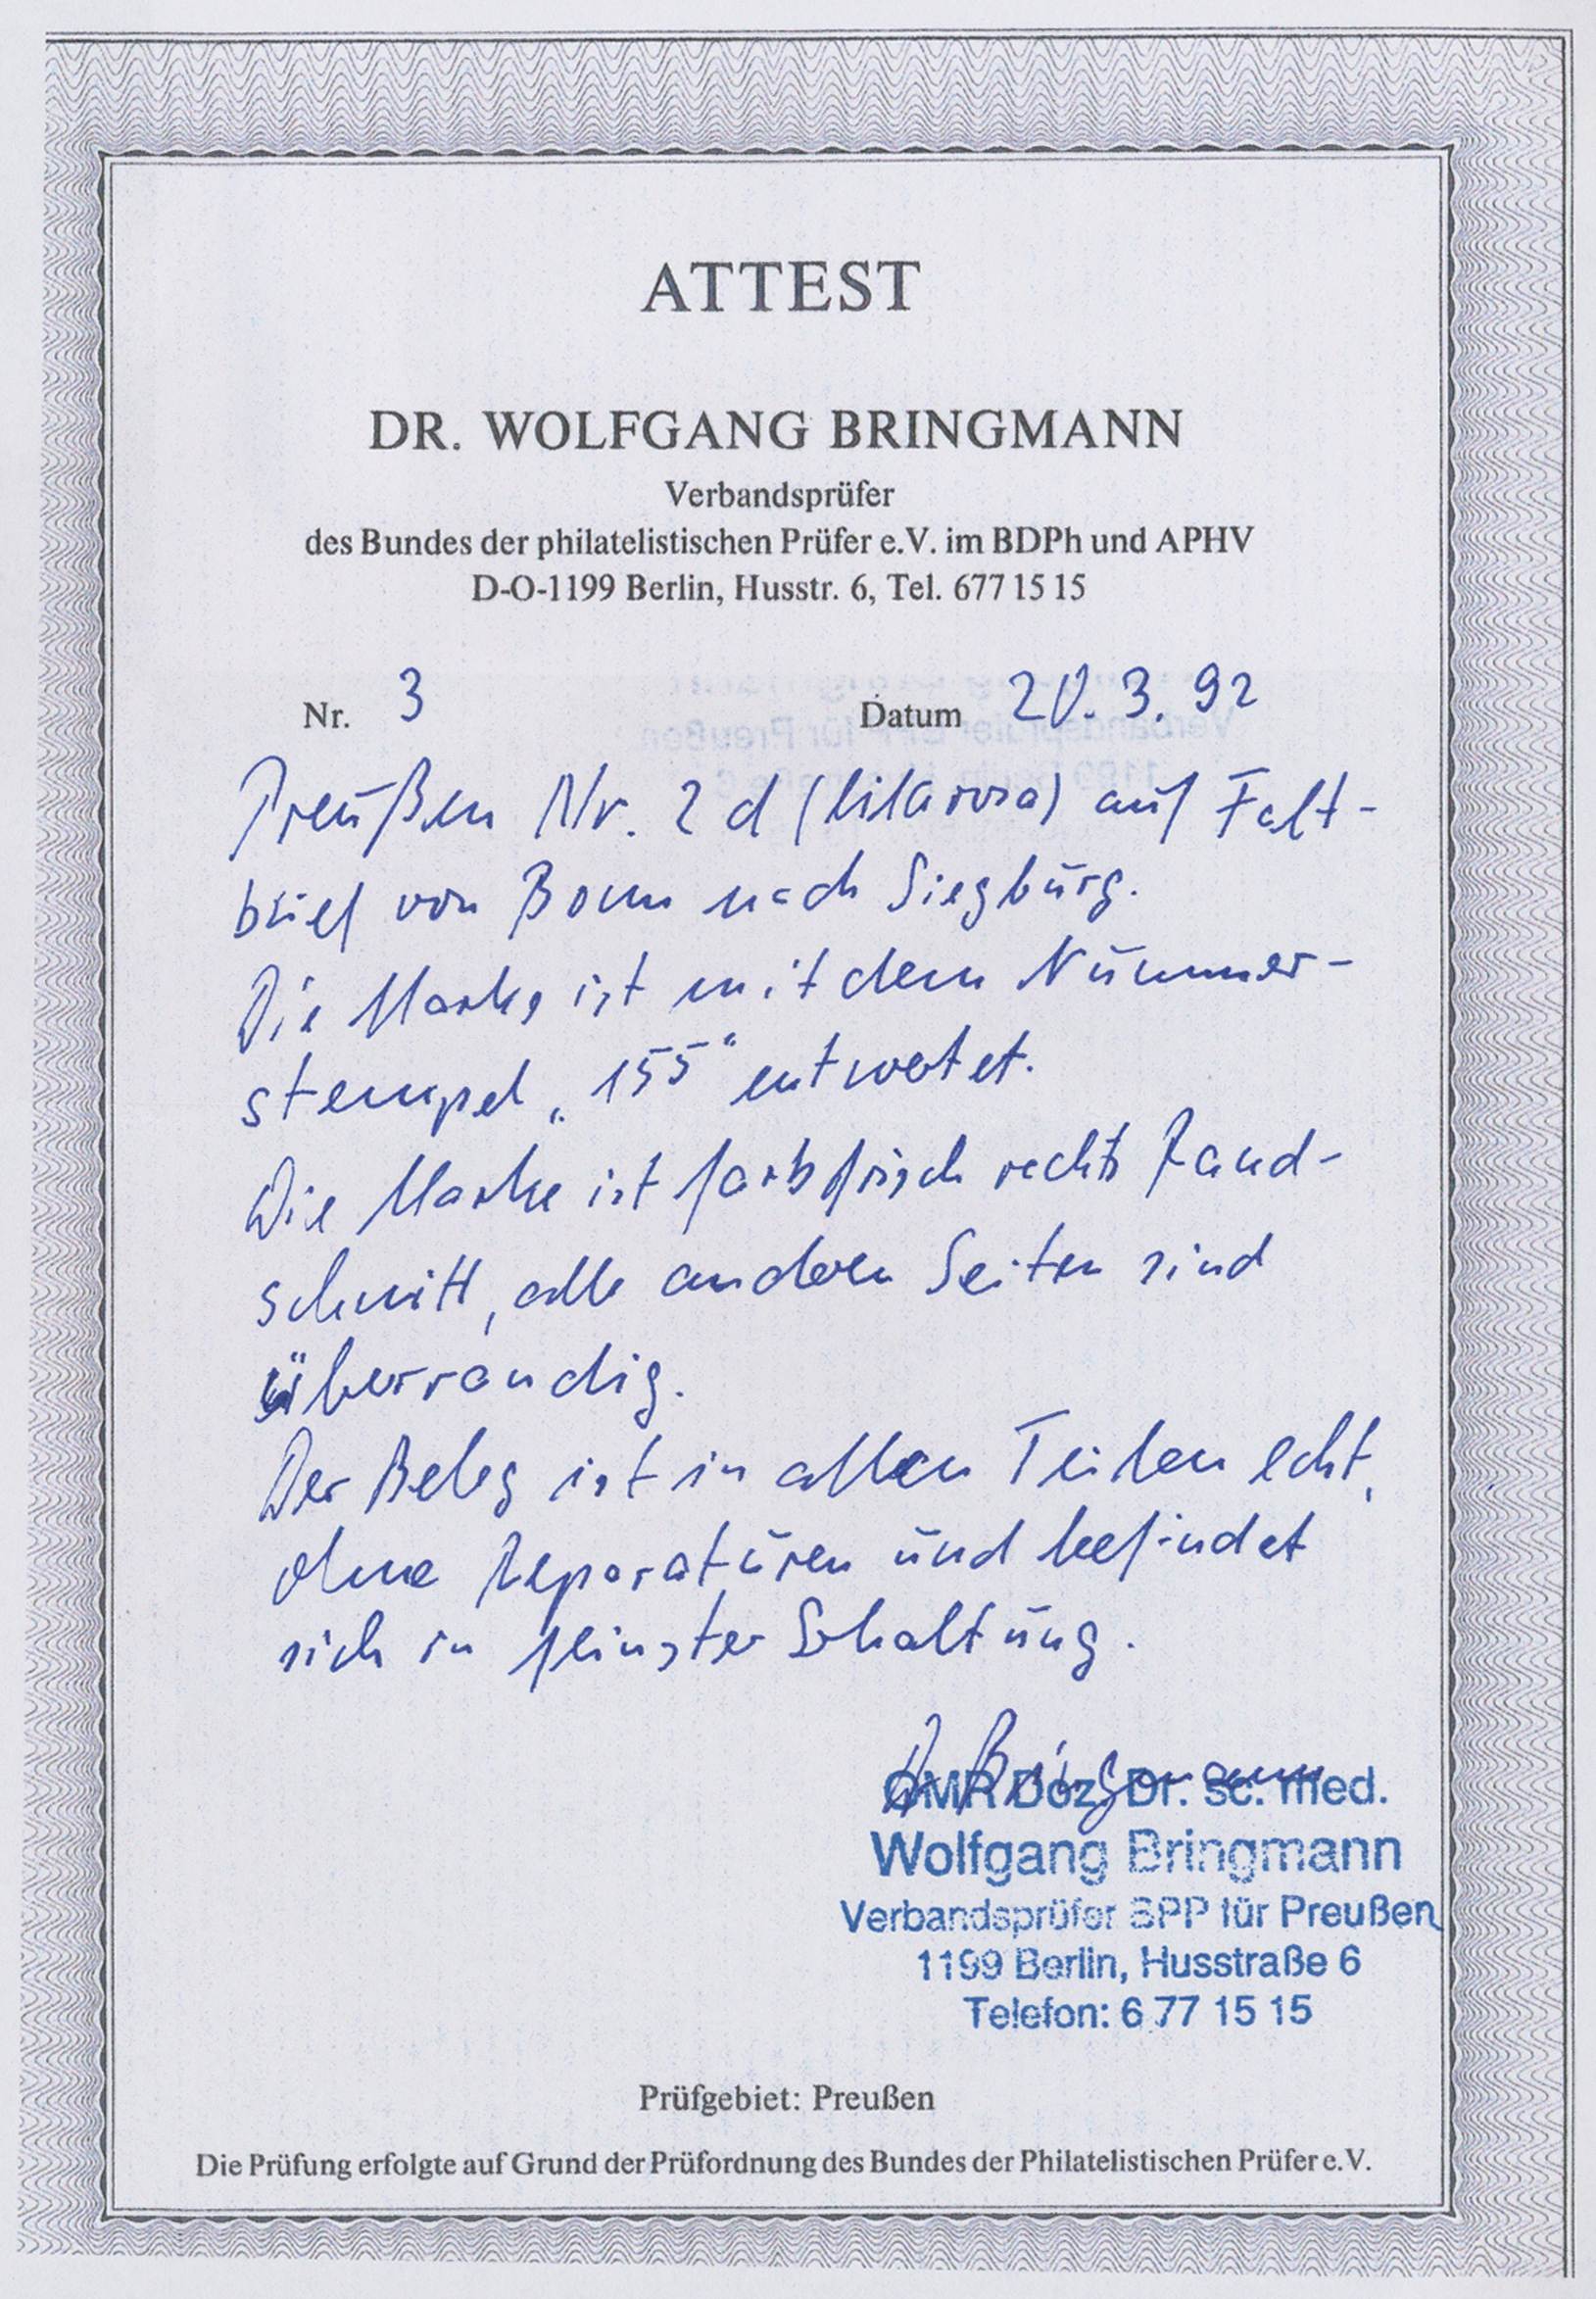 ATTEST
DR. WOLFGANG BRINGMANN
Verbandsprüfer
des Bundes der philatelistischen Prüfer e.V. im BDPh und APHV
D-O-1199 Berlin, Husstr. 6, Tel. 677 15 15
Nr. 3 Datum 20. 3. 92
Preußen Nr. 2 d (lilarosa) auf Falt-
brief von Bonn nach Siegburg.
Die Marke ist mit dem Nummer-
stempel „155“ entwertet.
Die Marke ist farbfrisch rechts Rand-
schnitt, alle anderen Seiten sind
überrandig.
Der Beleg ist in allen Teilen echt,
ohne Reparaturen und befindet
sich in feinster Erhaltung.
Dr Bringmann
OMR Doz. Dr. sc. med.
Wolfgang Bringmann
Verbandsprüfer BPP für Preußen
1199 Berlin, Husstraße 6
Telefon: 6 77 15 15
Prüfgebiet: Preußen
Die Prüfung erfolgte auf Grund der Prüfordnung des Bundes der Philatelistischen Prüfer e.V.